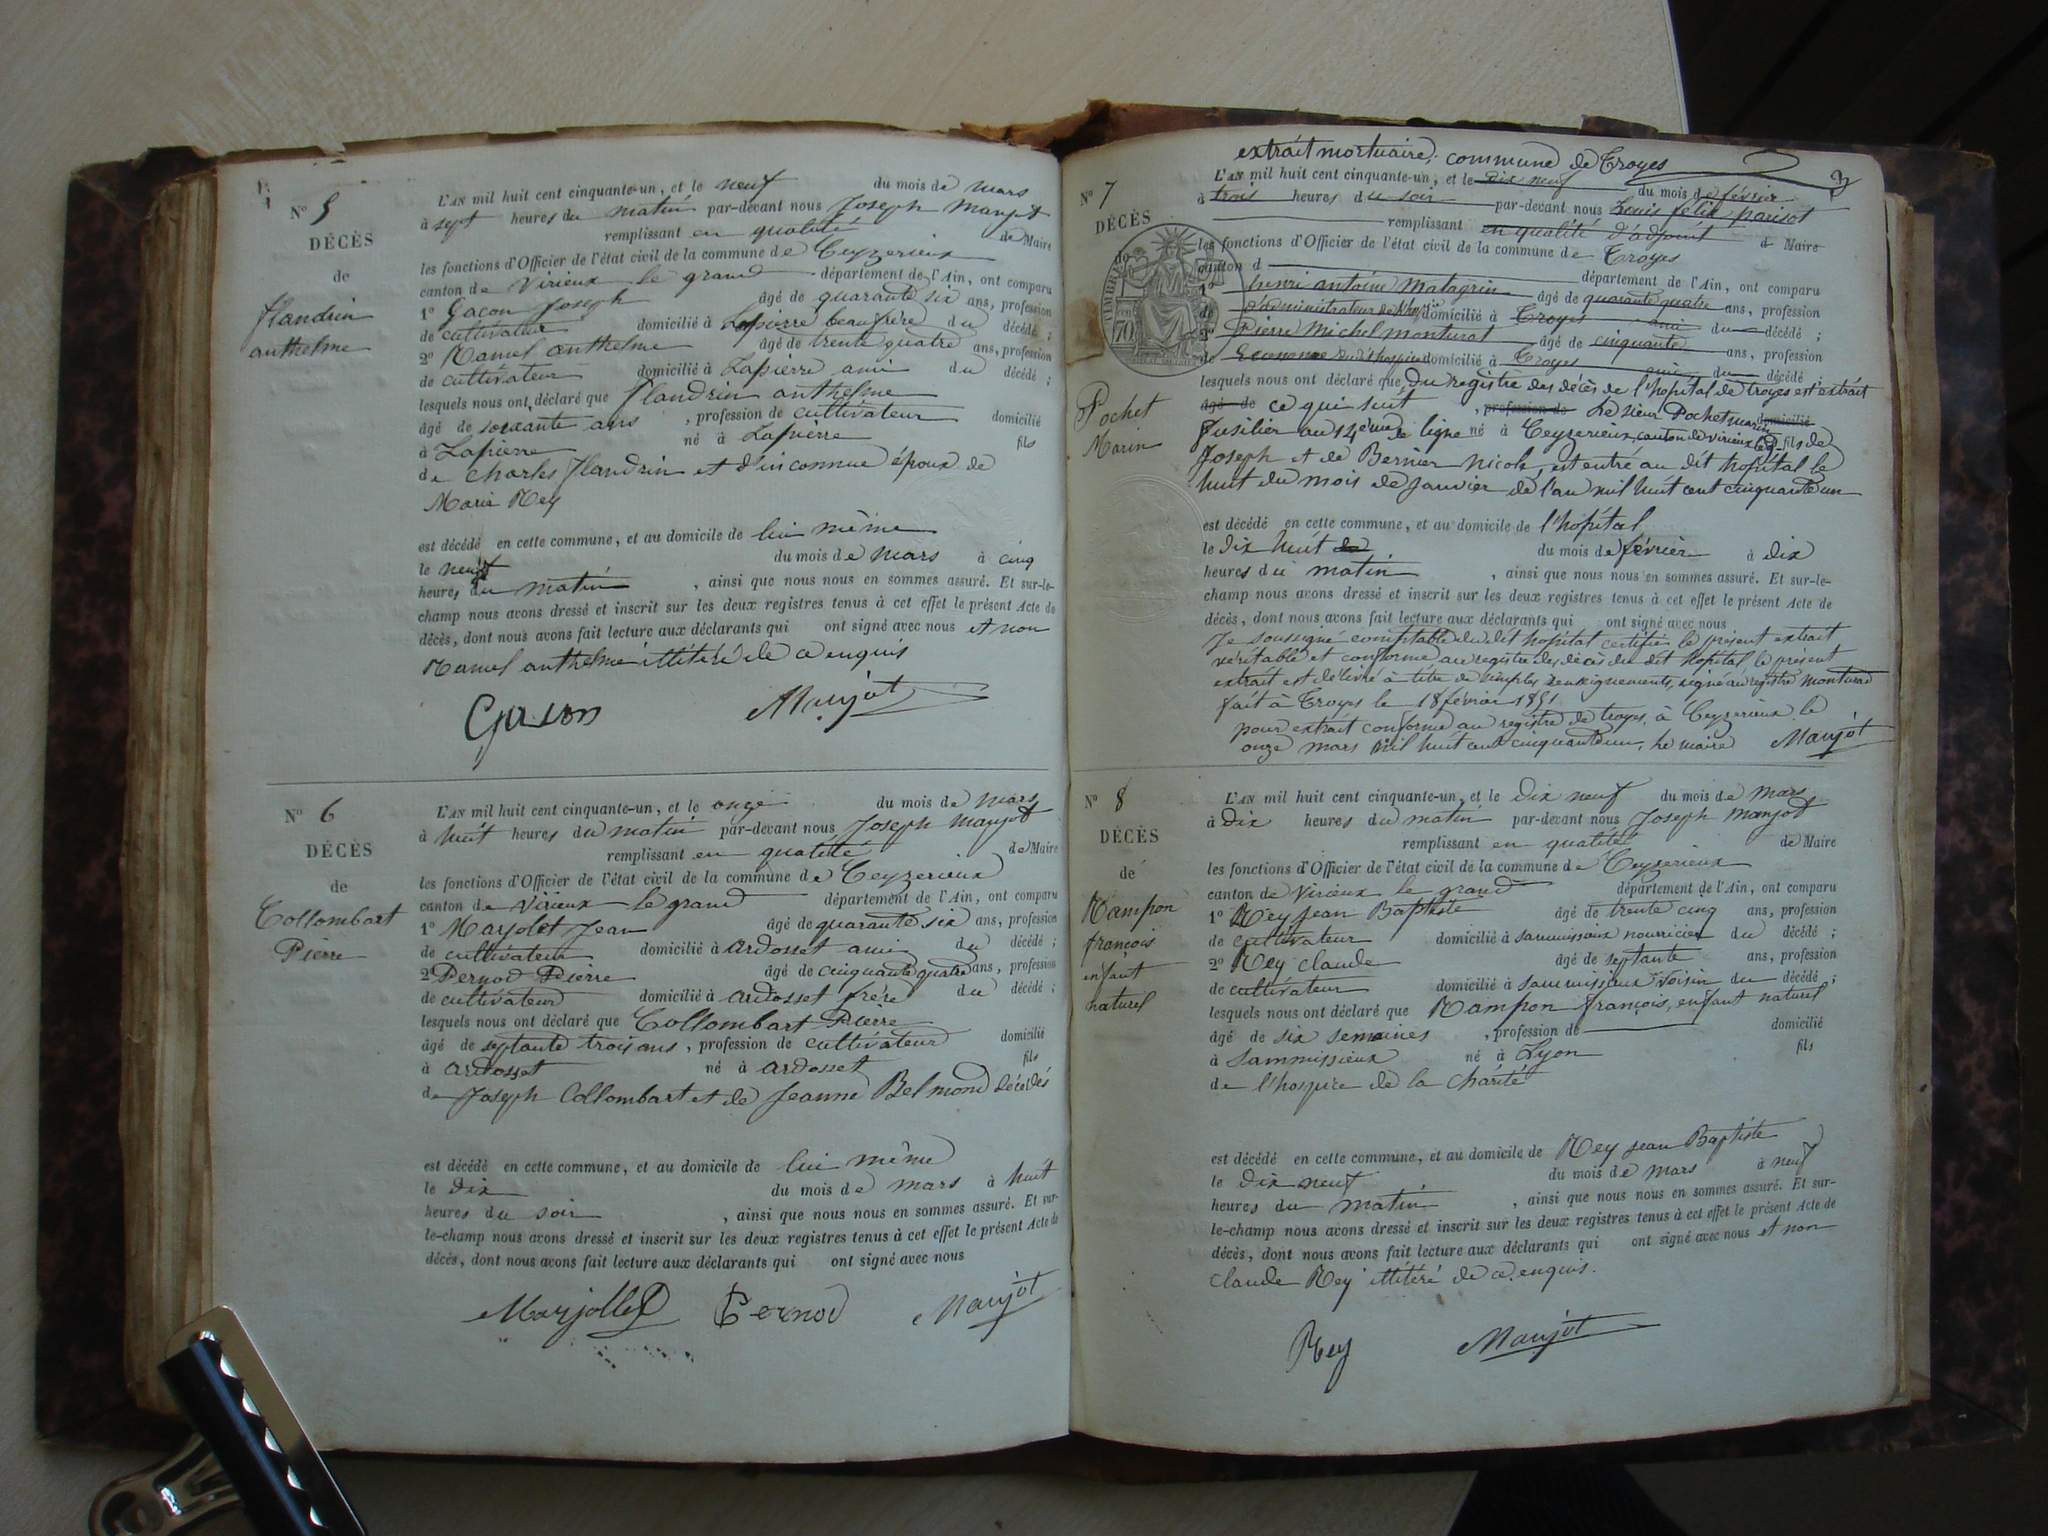 N° 5
DÉCÈS
de
flandrin
anthelme
L'AN mil huit cent cinquante-un, et le neuf du mois de mars
à sept heures du matin par-devant nous Joseph Maujot
remplissant en qualité de Maire
les fonctions d'Officier de l'état civil de la commune de Ceyzerieux
canton de Virieux le grand département de l'Ain, ont comparu
1° Gacon Joseph âgé de quarante six ans, profession
de cultivateur domicilié à Lapierre beaufrère du décédé ;
2° Ramel anthelme âgé de trente quatre ans, profession
de cultivateur domicilié à Lapierre ami du décédé ;
lesquels nous ont déclaré que flandrin anthelme
âgé de soixante ans , profession de cultivateur domicilié
à Lapierre né à Lapierre fils
de Charles flandrin et d'inconnue époux de
Marie Rey
est décédé en cette commune, et au domicile de lui même
le neuf du mois de mars à cinq
heures du matin , ainsi que nous nous en sommes assuré. Et sur-le-
champ nous avons dressé et inscrit sur les deux registres tenus à cet effet le présent Acte de
décès, dont nous avons fait lecture aux déclarants qui ont signé avec nous et non
Ramel anthelme illitéré de ce enquis
Gacon Maujot
N° 6
DÉCÈS
de
Collombart
Pierre
L'AN mil huit cent cinquante-un, et le onze du mois de mars
à huit heures du matin par-devant nous Joseph Maujot
remplissant en qualité de Maire
les fonctions d'Officier de l'état civil de la commune de Ceyzerieux
canton de Virieux le grand département de l'Ain, ont comparu
1° Marjolet Jean âgé de quarante six ans, profession
de cultivateur domicilié à ardosset ami du décédé ;
2° Pernod Pierre âgé de cinquante quatre ans, profession
de cultivateur domicilié à ardosset frère du décédé ;
lesquels nous ont déclaré que Collombart Pierre
âgé de septante trois ans , profession de cultivateur domicilié
à ardosset né à ardosset fils
de Joseph Collombart et de Jeanne Belmond décédés
est décédé en cette commune, et au domicile de lui même
le dix du mois de mars à huit
heures du soir , ainsi que nous nous en sommes assuré. Et sur-
le-champ nous avons dressé et inscrit sur les deux registres tenus à cet effet le présent Acte de
décès, dont nous avons fait lecture aux déclarants qui ont signé avec nous
Marjollet Pernod Maujot
extrait mortuaire, commune de Troyes
3
N° 7
DÉCÈS
de
TIMBRE
70
Pochet
Marin
L'AN mil huit cent cinquante-un, et le dix neuf du mois de février
à trois heures du soir par-devant nous Louis félix parisot
remplissant en qualité d'adjoint d Maire
les fonctions d'Officier de l'état civil de la commune de Troyes
canton d département de l'Ain, ont comparu
1° henri antoine Matagrin âgé de quarante quatre ans, profession
de administrateur de domicilié à Troyes ami du décédé ;
2° Pierre Michel monturat âgé de cinquante ans, profession
de Econome du dit hospice domicilié à Troyes ami du décédé
lesquels nous ont déclaré que du registre des décès de l'hopital de troyes est extrait
âgé de ce qui suit , profession de Le sieur Pochet marin domicilié
fusilier au 14ème de ligne né à Ceyzerieux, canton de virieux le gd fils de
Joseph et de Bernier Nicole, est entré au dit hopital le
huit du mois de janvier de l'an mil huit cent cinquante un
est décédé en cette commune, et au domicile de l'hôpital
le dix huit de du mois de février à dix
heures du matin , ainsi que nous nous en sommes assuré. Et sur-le-
champ nous avons dressé et inscrit sur les deux registres tenus à cet effet le présent Acte de
décès, dont nous avons fait lecture aux déclarants qui ont signé avec nous
Je soussigné comptable du dit hopital certifie le présent extrait
véritable et conforme au registre des décès du dit hopital, le présent
extrait est délivré à titre de simples renseignements, signé au registre monturat
fait à Troyes le 18 février 1851
pour extrait conforme au registre de troyes, à Ceyzerieux le
onze mars mil huit cent cinquante un, le maire Maujot
N° 8
DÉCÈS
de
Rampon
françois
enfant
naturel
L'AN mil huit cent cinquante-un, et le dix neuf du mois de mars
à dix heures du matin par-devant nous Joseph Maujot
remplissant en qualité de Maire
les fonctions d'Officier de l'état civil de la commune de Ceyzerieux
canton de Virieux le grand département de l'Ain, ont comparu
1° Rey Jean Baptiste âgé de trente cinq ans, profession
de cultivateur domicilié à sammissieux nourricier du décédé ;
2° Rey claude âgé de septante ans, profession
de cultivateur domicilié à sammissieux voisin du décédé ;
lesquels nous ont déclaré que Rampon françois, enfant naturel
âgé de six semaines , profession de domicilié
à Sammissieux né à Lyon fils
de l'hospice de la charité
est décédé en cette commune, et au domicile de Rey Jean Baptiste
le dix neuf du mois de mars à neuf
heures du matin , ainsi que nous nous en sommes assuré. Et sur-
le-champ nous avons dressé et inscrit sur les deux registres tenus à cet effet le présent Acte de
décès, dont nous avons fait lecture aux déclarants qui ont signé avec nous et non
Claude Rey illitéré de ce enquis.
Rey Maujot